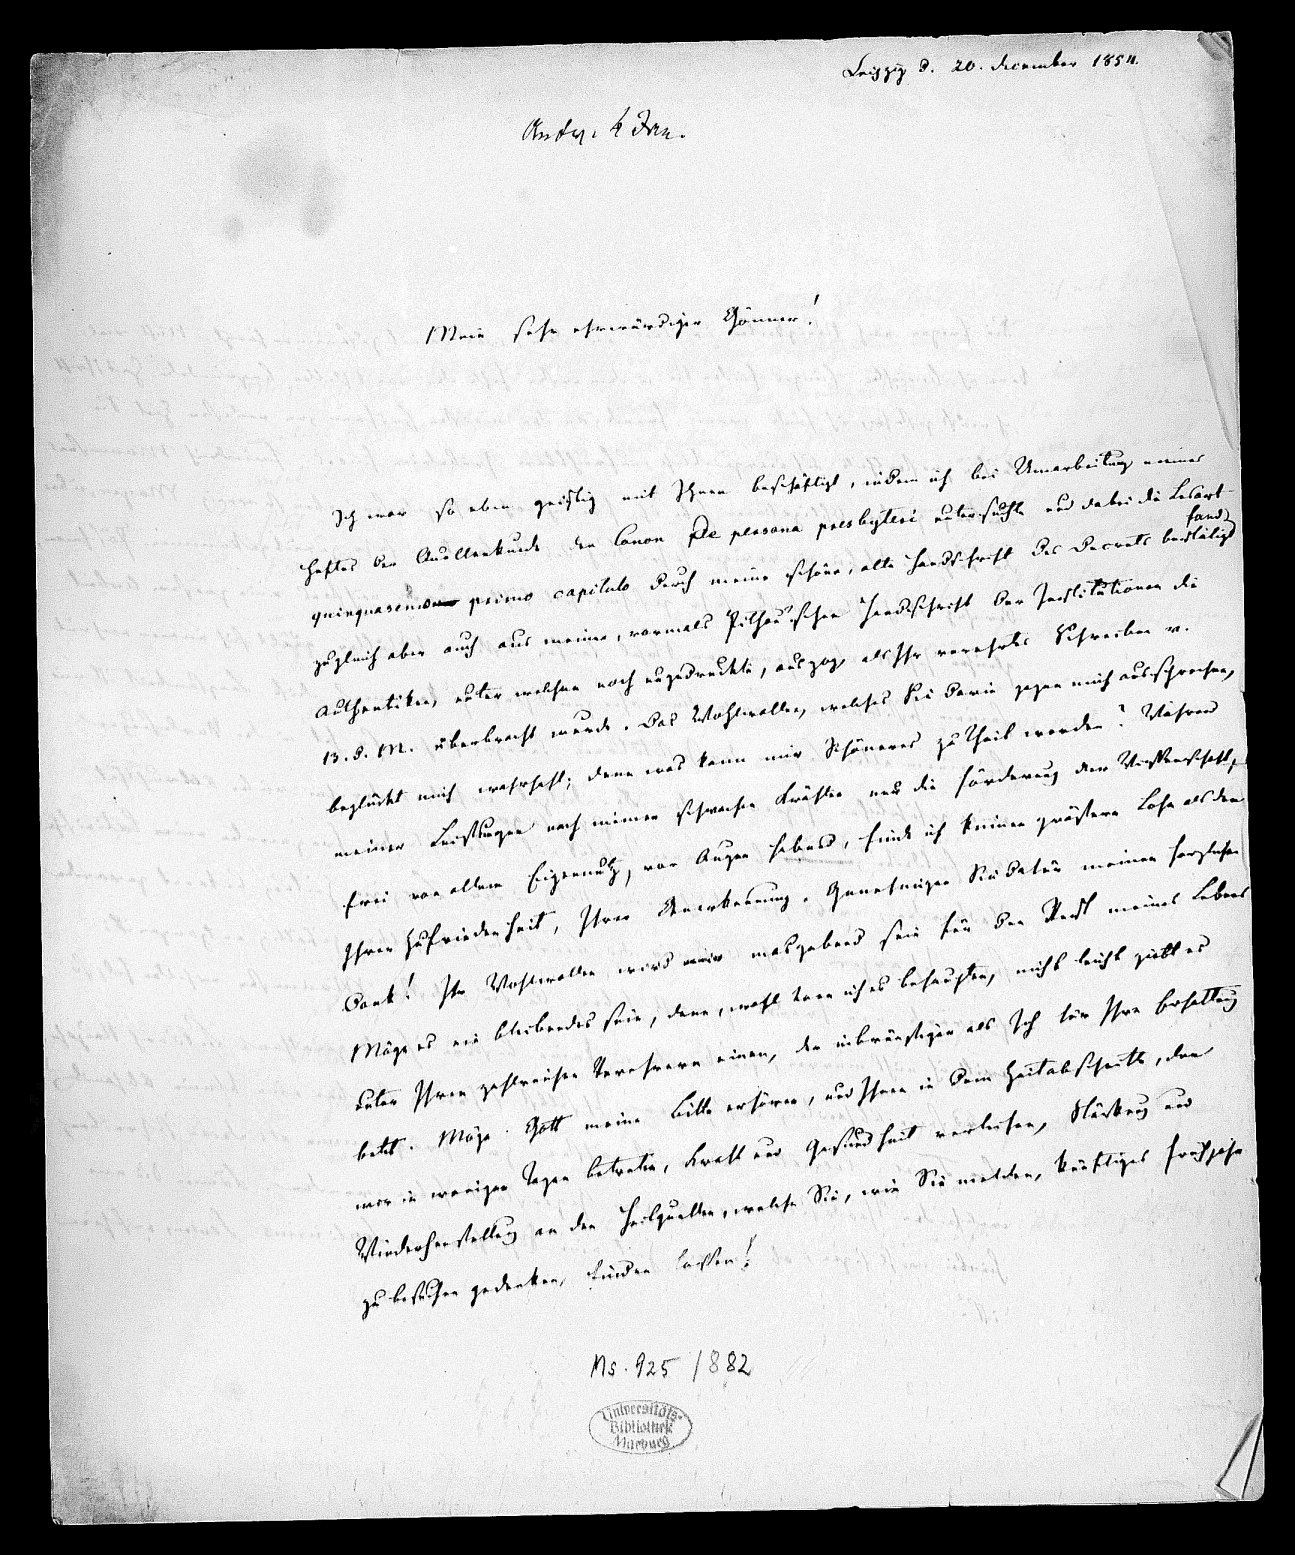 Leipzig d. 20. december 1854.
Antw. 4 Jan.
Mein sehr ehrwürdiger Gönner!
Ich war so eben geistig mit Ihnen beschäftigt, indem ich bei Umarbeitung meines
Heftes der Quellenkunde den Canon De persona presbyteri untersuchte und dabei die Lesart
quinquagesimo primo capitulo durch meine schöne, alte Handschrift des Decrets bestätigt
fand,
zugleich aber auch aus meiner, vormals Pithou'schen Handschrift der Institutionen die
Authentiken, unter welchen noch ungedruckte, auszog, als Ihr verehrtes Schreiben v.
13. d. M. überbracht wurde. Das Wohlwollen, welches Sie darin gegen mich aussprechen,
beglückt mich wahrhaft; denn was kann mir Schöneres zu Theil werden? Während
meiner Leistungen nach meinen schwachen Kräften nur die Förderung der Wissenschaft,
frei von allem Eigennutz, vor Augen habend, finde ich keinen größern Lohn als den
Ihrer Zufriedenheit, Ihrer Anerkennung. Genehmigen Sie dafür meinen herzlichen
Dank! Ihr Wohlwollen wird mir masgebend sein für den Rest meines Lebens
Möge es ein bleibendes sein, denn, wohl kann ich es behaupten, nicht leicht giebt es
unter Ihren zahlreichen Verehrern einen, der inbrünstiger als Ich für Ihre Erhaltung
betet. Möge Gott meine Bitte erhören, und Ihnen in dem Zeitabschnitte, den
wir in wenigen Tagen betreten, Kraft und Gesundheit verleihen, Stärkung und
Wiederherstellung an den Heilquellen, welche Sie, wie Sie melden, künftiges Frühjahr
zu besuchen gedenken, finden lassen!
Ms. 925/882
Universitäts-
Bibliothek
Marburg